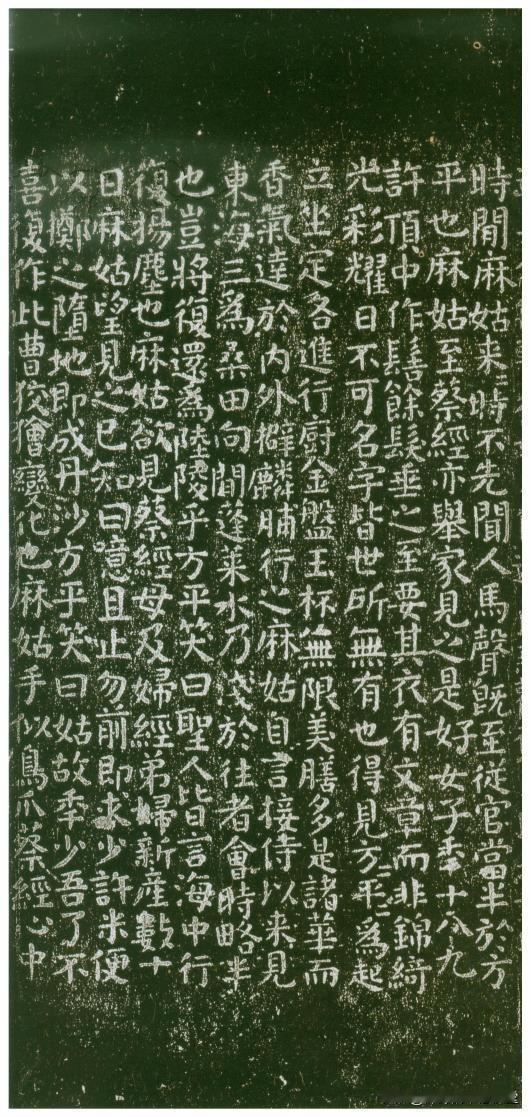 時聞麻姑来=時不先聞人馬聲既至従官當半於方
平也麻姑至蔡經亦舉家見之是好女子年十八九
許頂中作髻餘髮垂之至要其衣有文章而非錦綺
光彩耀日不可名字皆世所無有也得見方平=爲起
立坐定各進行厨金盤玉杯無限美膳多是諸華而
香氣達於内外擗麟脯行之麻姑自言接侍以来見
東海三爲桑田向間蓬莱水乃淺於往者會時略半
也豈將復還為陸陵乎方平笑曰聖人皆言海中行
復揚塵也麻姑欲見蔡經母及婦經弟婦新産數十
日麻姑望見之已知曰噫且止勿前即求少許米便
以擲之墮地即成丹沙方平笑曰姑故年少吾了不
喜復作此曹狡獪變化也麻姑手似鳥爪蔡經心中